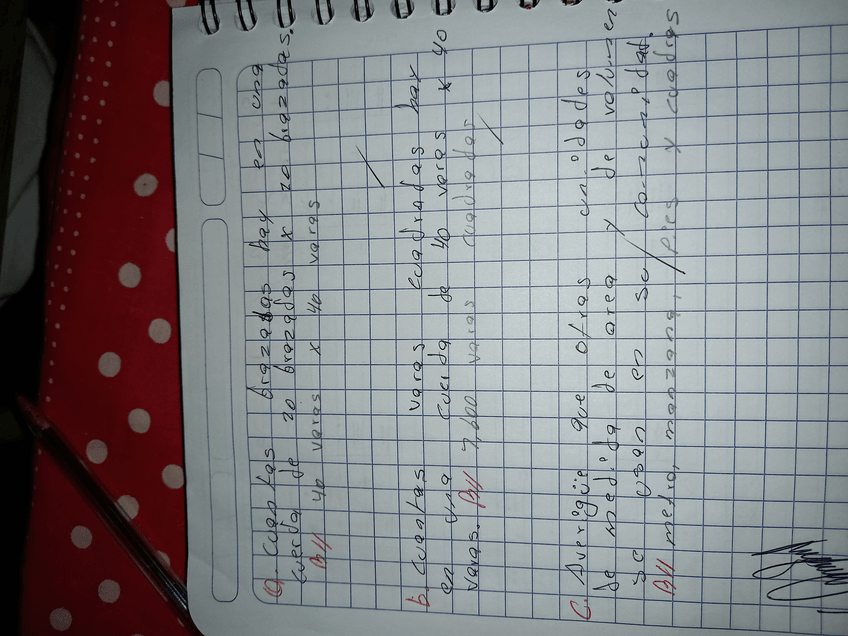 a. Cuantas brazadas hay en una
cuerda de 20 brazadas x 20 brazadas.
R// 40 varas x 40 varas
b. Cuantas varas cuadradas hay
en una cuerda de 40 varas x 40
varas. R// 1,600 varas cuadradas
C. Averigüe que otras unidades
de medida de area y de volumen
se usan en su comunidad.
R// metro, manzana, pies y cuadras